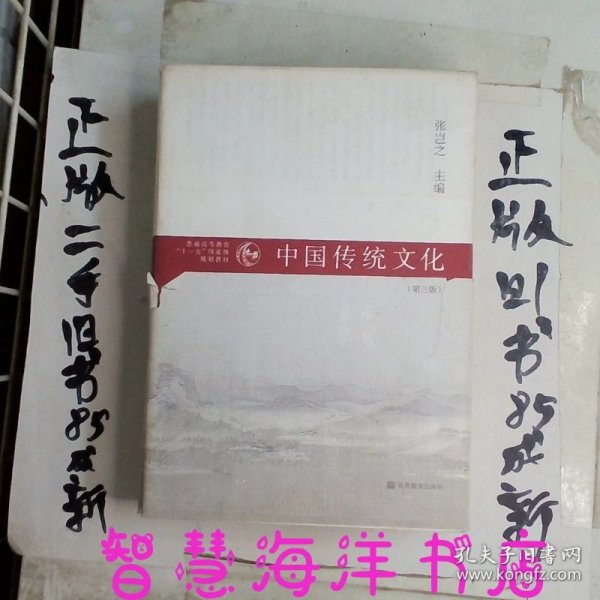 正版二手旧书85成新
张岂之 主编
普通高等教育
“十一五”国家级
规划教材
中国传统文化
(第三版)
高等教育出版社
正版旧书85成新
智慧海洋书店
孔夫子旧书网
www.kongfz.com